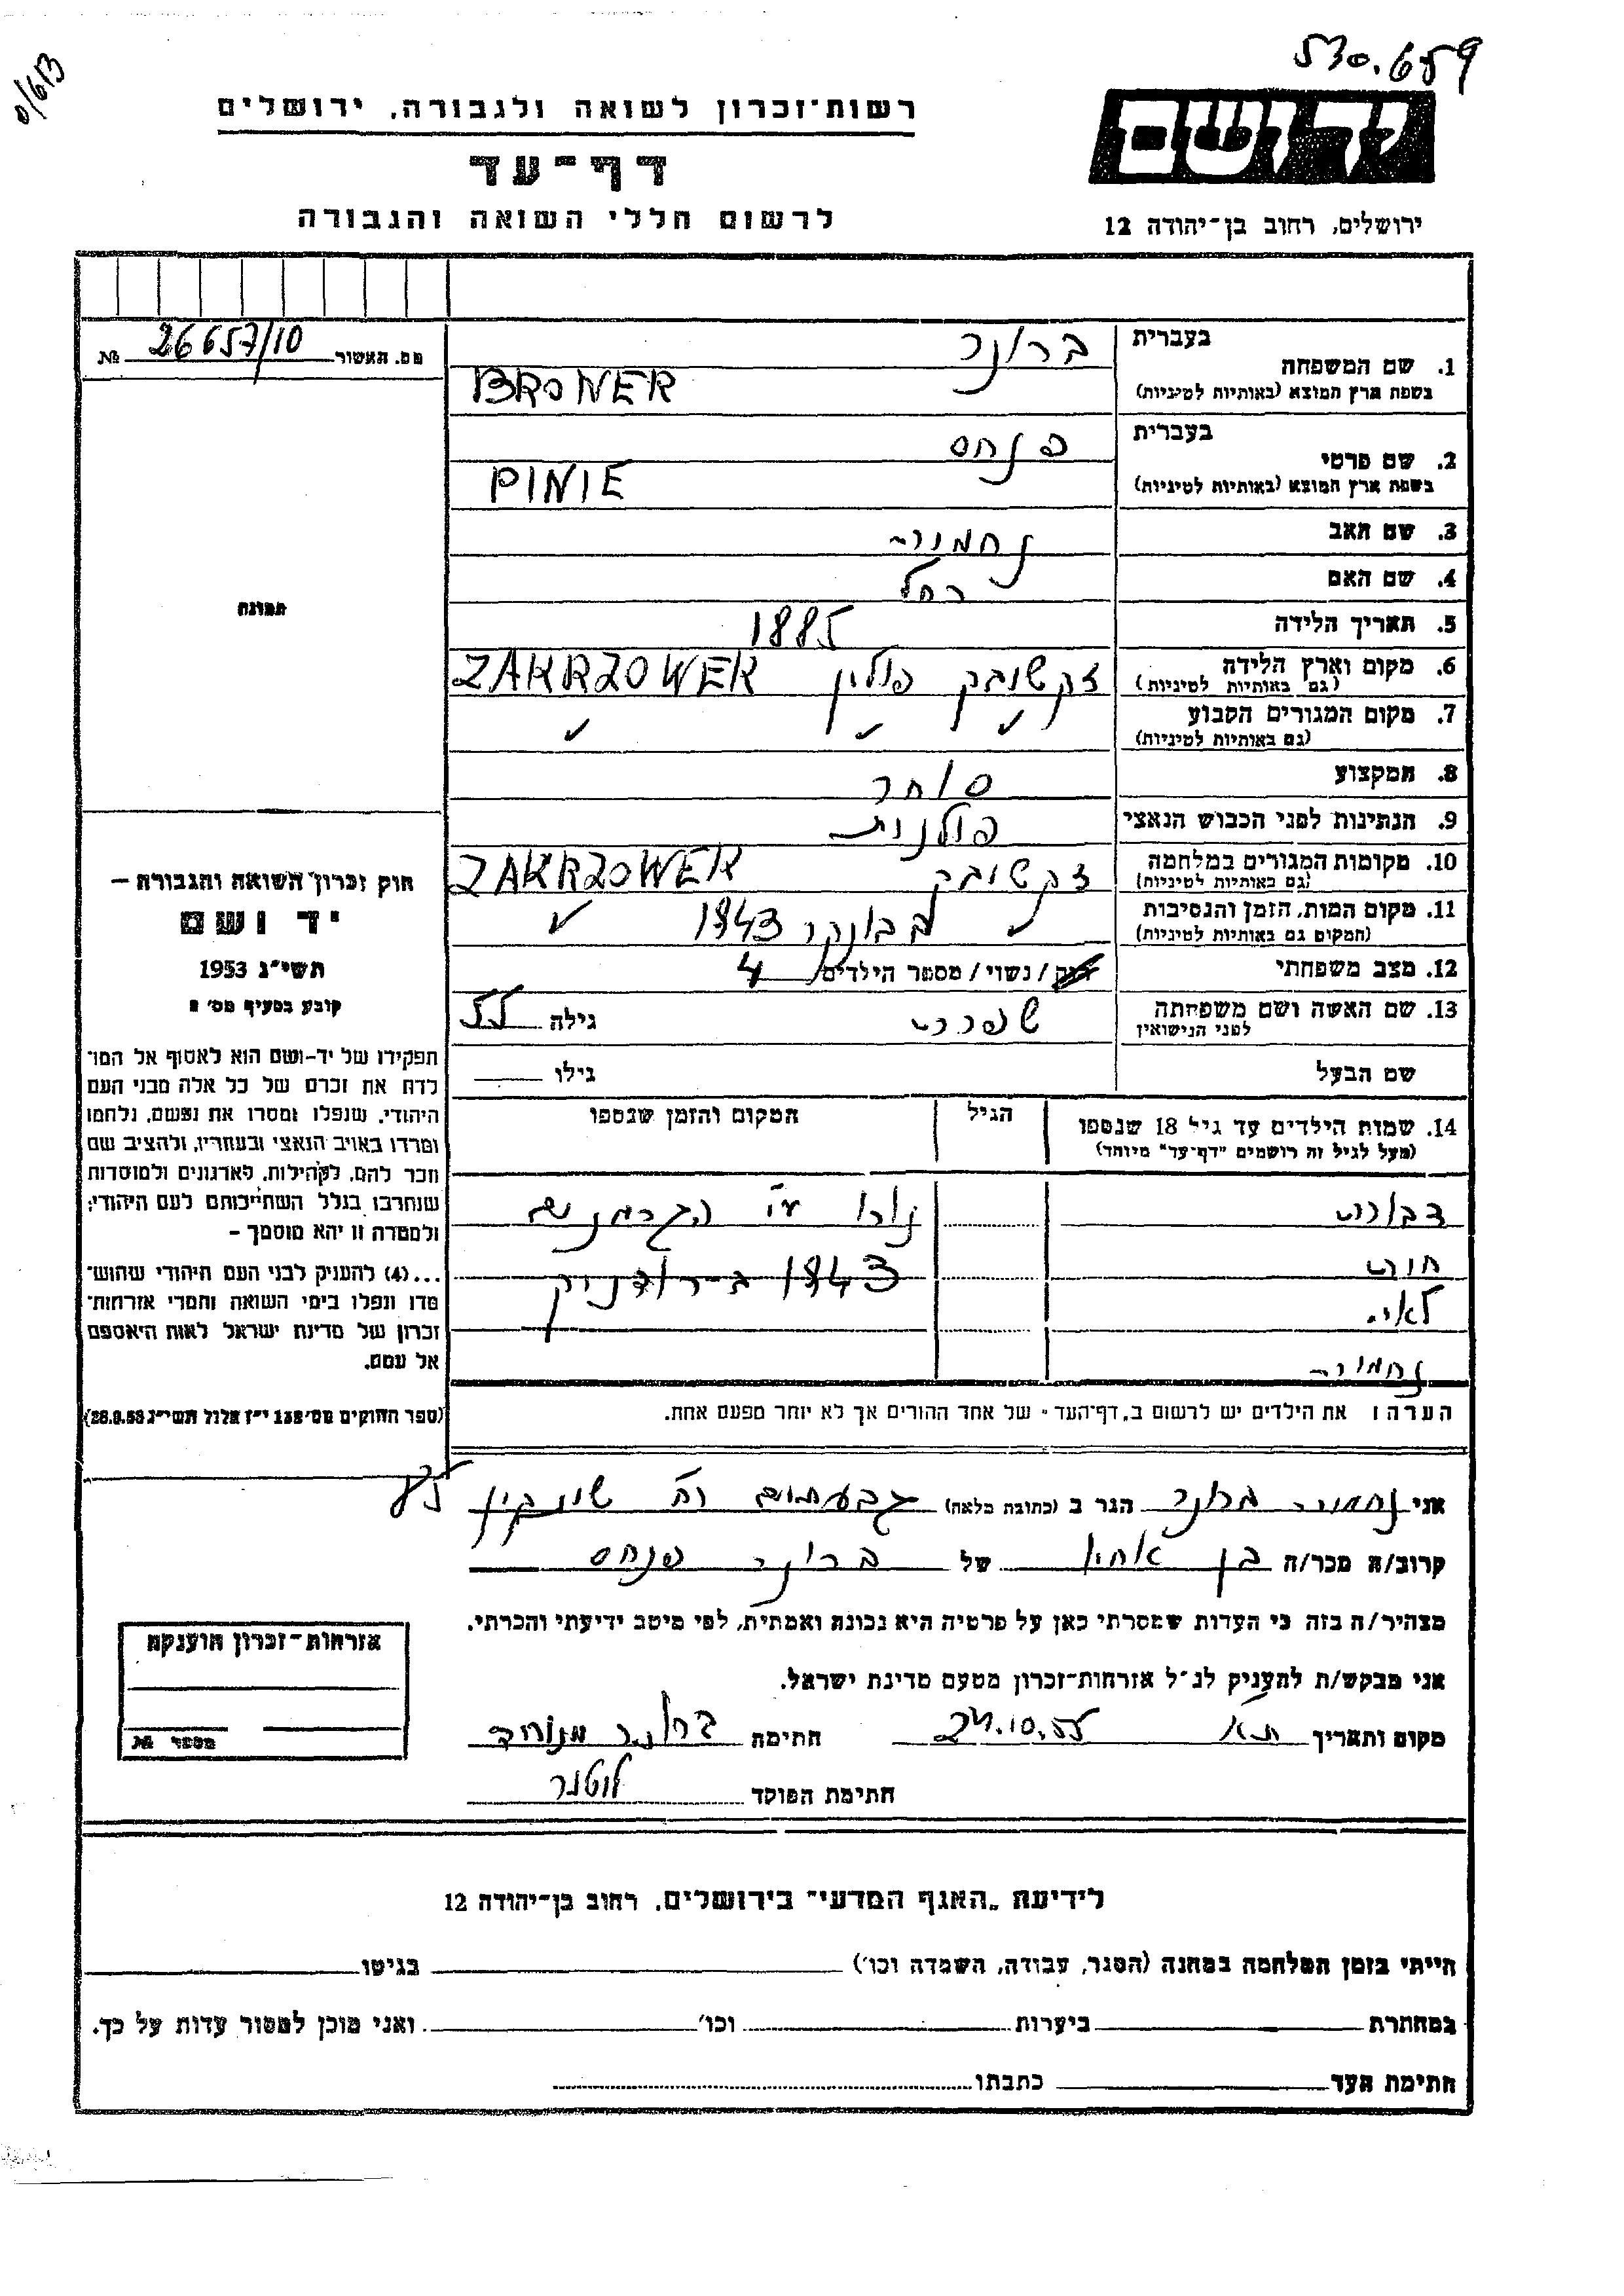 530.659
0/613
יד ושם
ירושלים, רחוב בן־יהודה 12
רשות־זכרון לשואה ולגבורה, ירושלים
דף־עד
לרשום חללי השואה והגבורה
מס. האשור 26657/10 №
1. שם המשפחה
בעברית ברונר
בשפת ארץ המוצא (באותיות לטיניות) BRONER
2. שם פרטי
בעברית פנחס
בשפת ארץ המוצא (באותיות לטיניות) PINIE
3. שם האב נחמיה
4. שם האם רחל
5. תאריך הלידה 1885
6. מקום וארץ הלידה זקשובק פולין ZAKRZOWEK
(גם באותיות לטיניות)
7. מקום המגורים הקבוע ✓ ✓ ✓
(גם באותיות לטיניות)
8. המקצוע סוחר
9. הנתינות לפני הכבוש הנאצי פולנית
10. מקומות המגורים במלחמה זקשובק ZAKRZOWEK
(גם באותיות לטיניות)
11. מקום המות, הזמן והנסיבות ✓ בבונקר 1943 ✓
(המקום גם באותיות לטיניות)
12. מצב משפחתי רוק / נשוי / מספר הילדים 4
13. שם האשה ושם משפחתה
לפני הנישואין
גילה 55
שם הבעל גילו
14. שמות הילדים עד גיל 18 שנספו הגיל המקום והזמן שנספו
(מעל לגיל זה רושמים "דף־עד" מיוחד)
דבורה נורו ע"י הגרמנים
חוה 1943 ב-רודניק
לאה
נחמיה
הערה: את הילדים יש לרשום ב„דף־העד" של אחד ההורים אך לא יותר מפעם אחת.
תמונה
חוק זכרון השואה והגבורה –
יד ושם
תשי"ג 1953
קובע בסעיף מס' 2
תפקידו של יד-ושם הוא לאסוף אל המו־
לדת את זכרם של כל אלה מבני העם
היהודי, שנפלו ומסרו את נפשם, נלחמו
ומרדו באויב הנאצי ובעוזריו, ולהציב שם
וזכר להם, לקהילות, לארגונים ולמוסדות
שנחרבו בגלל השתייכותם לעם היהודי;
ולמטרה זו יהא מוסמך –
...(4) להעניק לבני העם היהודי שהוש־
מדו ונפלו בימי השואה והמרי אזרחות־
זכרון של מדינת ישראל לאות היאספם
אל עמם.
(ספר החוקים מס' 132 י"ז אלול תשי"ג 28.8.53)
אני נחמיה ברונר הגר ב (כתובת מלאה) גבעתיים רח' שינקין
קרוב/ה מכר/ה בן אחיו של ברונר פנחס
מצהיר/ה בזה כי העדות שמסרתי כאן על פרטיה היא נכונה ואמתית, לפי מיטב ידיעתי והכרתי.
אני מבקש/ת להעניק לנ"ל אזרחות־זכרון מטעם מדינת ישראל.
מקום ותאריך ת"א 24.10.55 חתימה ברונר
חתימת הפוקד
אזרחות־זכרון הוענקה
מספר №
לידיעת „האגף המדעי" בירושלים, רחוב בן־יהודה 12
הייתי בזמן המלחמה במחנה (הסגר, עבודה, השמדה וכו') בגיטו
במחתרת ביערות וכו' ואני מוכן למסור עדות על כך.
חתימת העד כתבתו